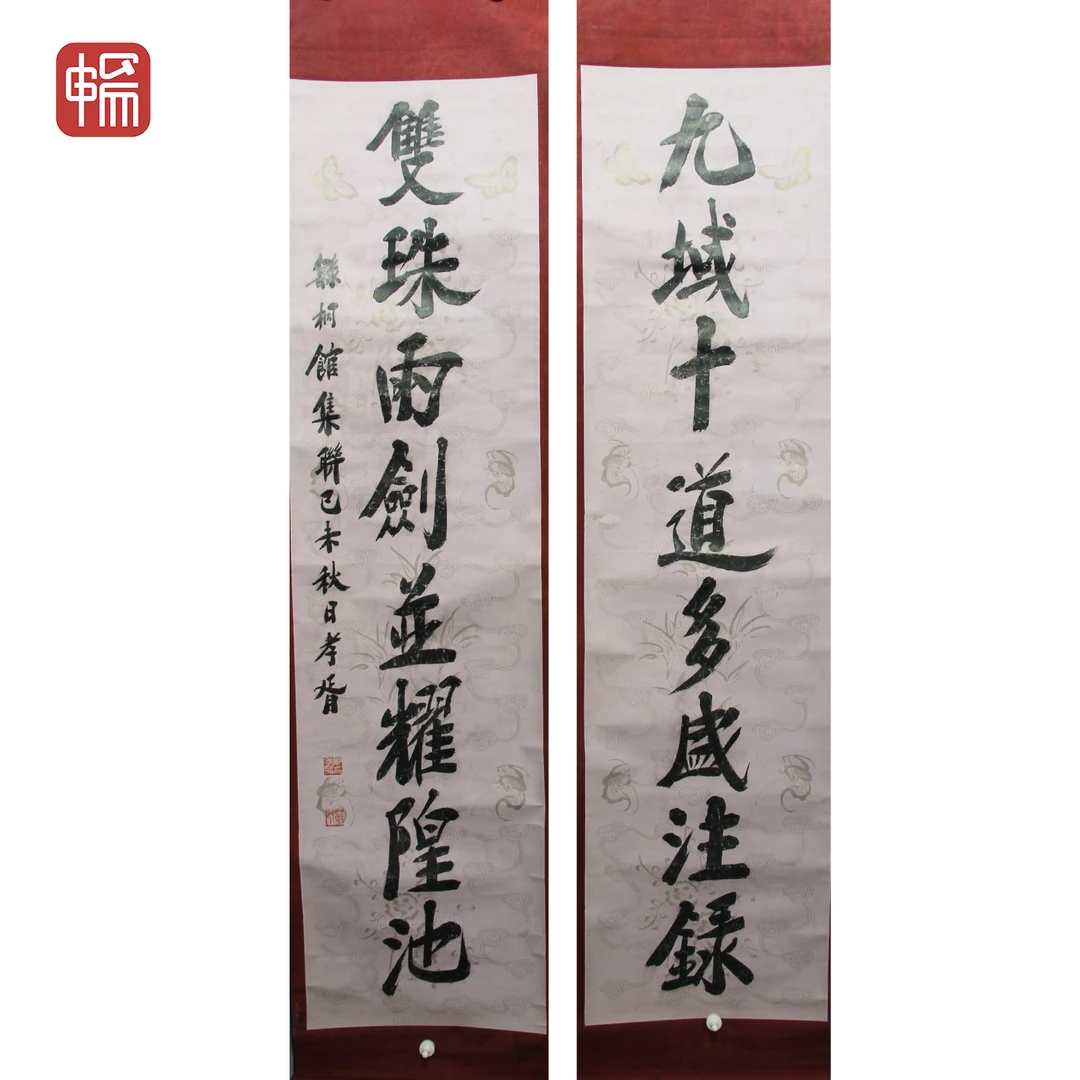 九域十道多盛注錄
雙珠兩劍並耀隍池
柯館集聯己未秋日孝胥